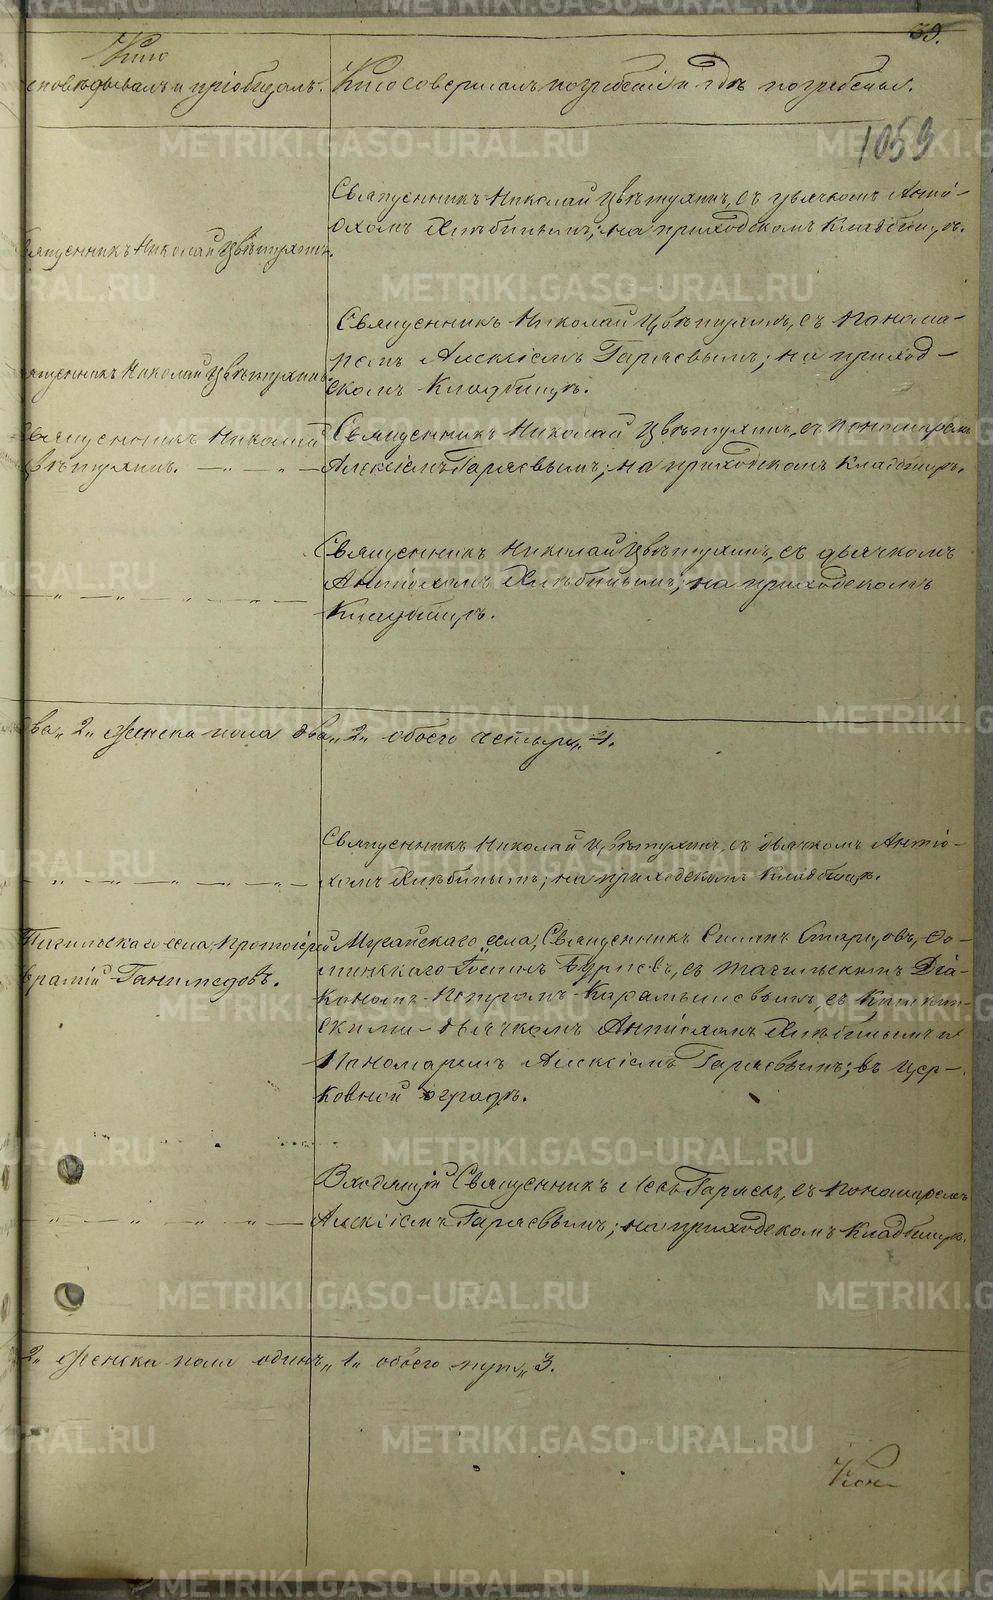 39.
Кто
исповѣдывалъ и пріобщалъ.
Кто совершалъ погребеніе и гдѣ погребены.
1059
Священникъ Николай Цвѣтухинъ, съ дьячкомъ Антіохомъ
Хлѣбинымъ; на приходскомъ Кладбищѣ.
Священникъ Николай Цвѣтухинъ.
Священникъ Николай Цвѣтухинъ, съ Панома-
ремъ Алексіемъ Гаряевымъ; на приход-
скомъ Кладбищѣ.
Священникъ Николай Цвѣтухинъ.
Священникъ Николай
Цвѣтухинъ.
Священникъ Николай Цвѣтухинъ, съ Пономаремъ
Алексіемъ Гаряевымъ; на приходскомъ Кладбищѣ.
Священникъ Николай Цвѣтухинъ, съ дьячкомъ
Антіохомъ Хлѣбинымъ; на приходскомъ
Кладбищѣ.
два „2„ женска пола два „2„ обоего четыре „4.
Священникъ Николай Цвѣтухинъ, съ дьячкомъ Антіо-
хомъ Хлѣбинымъ; на приходскомъ Кладбищѣ.
Тагильскаго села Протоіерей
Ганимедовъ.
Мугайскаго села, Священникъ Старцовъ, Фо-
минскаго съ Тагильскимъ Діа-
кономъ Петромъ Карамышевымъ, съ
дьячкомъ Антіохомъ Хлѣбинымъ и
Пономаремъ Алексіемъ Гаряевымъ; въ цер-
ковной оградѣ.
Входящій Священникъ Левъ Гаряевъ, съ Пономаремъ
Алексіемъ Гаряевымъ; на приходскомъ Кладбищѣ.
2„ женска пола одинъ „1„ обоего три „3.
METRIKI.GASO-URAL.RU